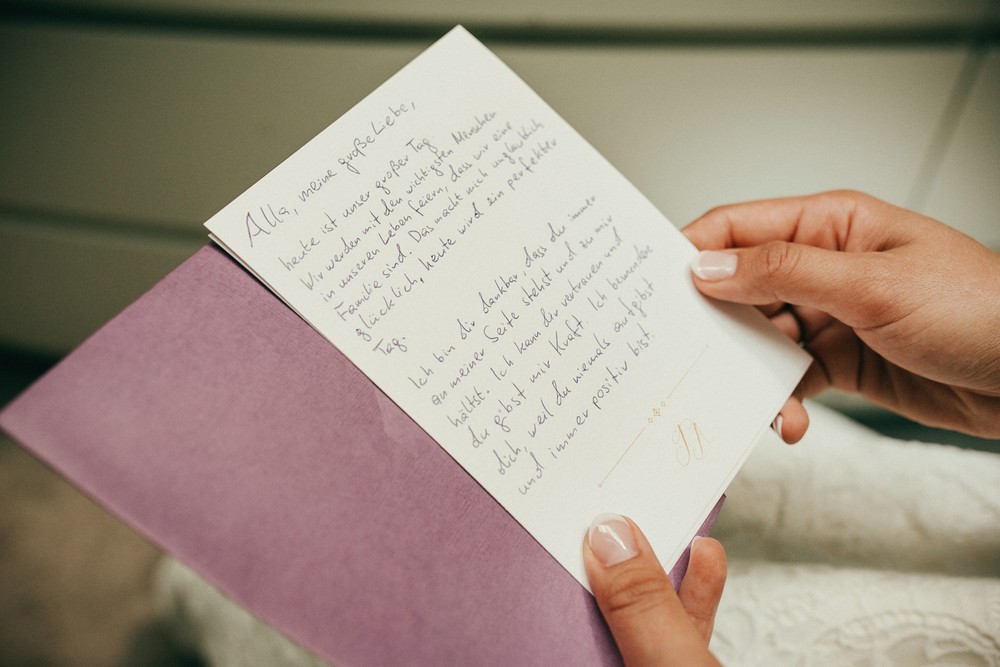 Alla, meine große Liebe,
heute ist unser großer Tag
Wir werden mit den wichtigsten Menschen
in unseren Leben feiern, dass wir eine
Familie sind. Das macht mich unglaublich
glücklich, heute wird ein perfekter
Tag.
Ich bin dir dankbar, dass du immer
an meiner Seite stehst und zu mir
hältst. Ich kann dir vertrauen und
du gibst mir Kraft. Ich bewundere
dich, weil du niemals aufgibst
und immer positiv bist.